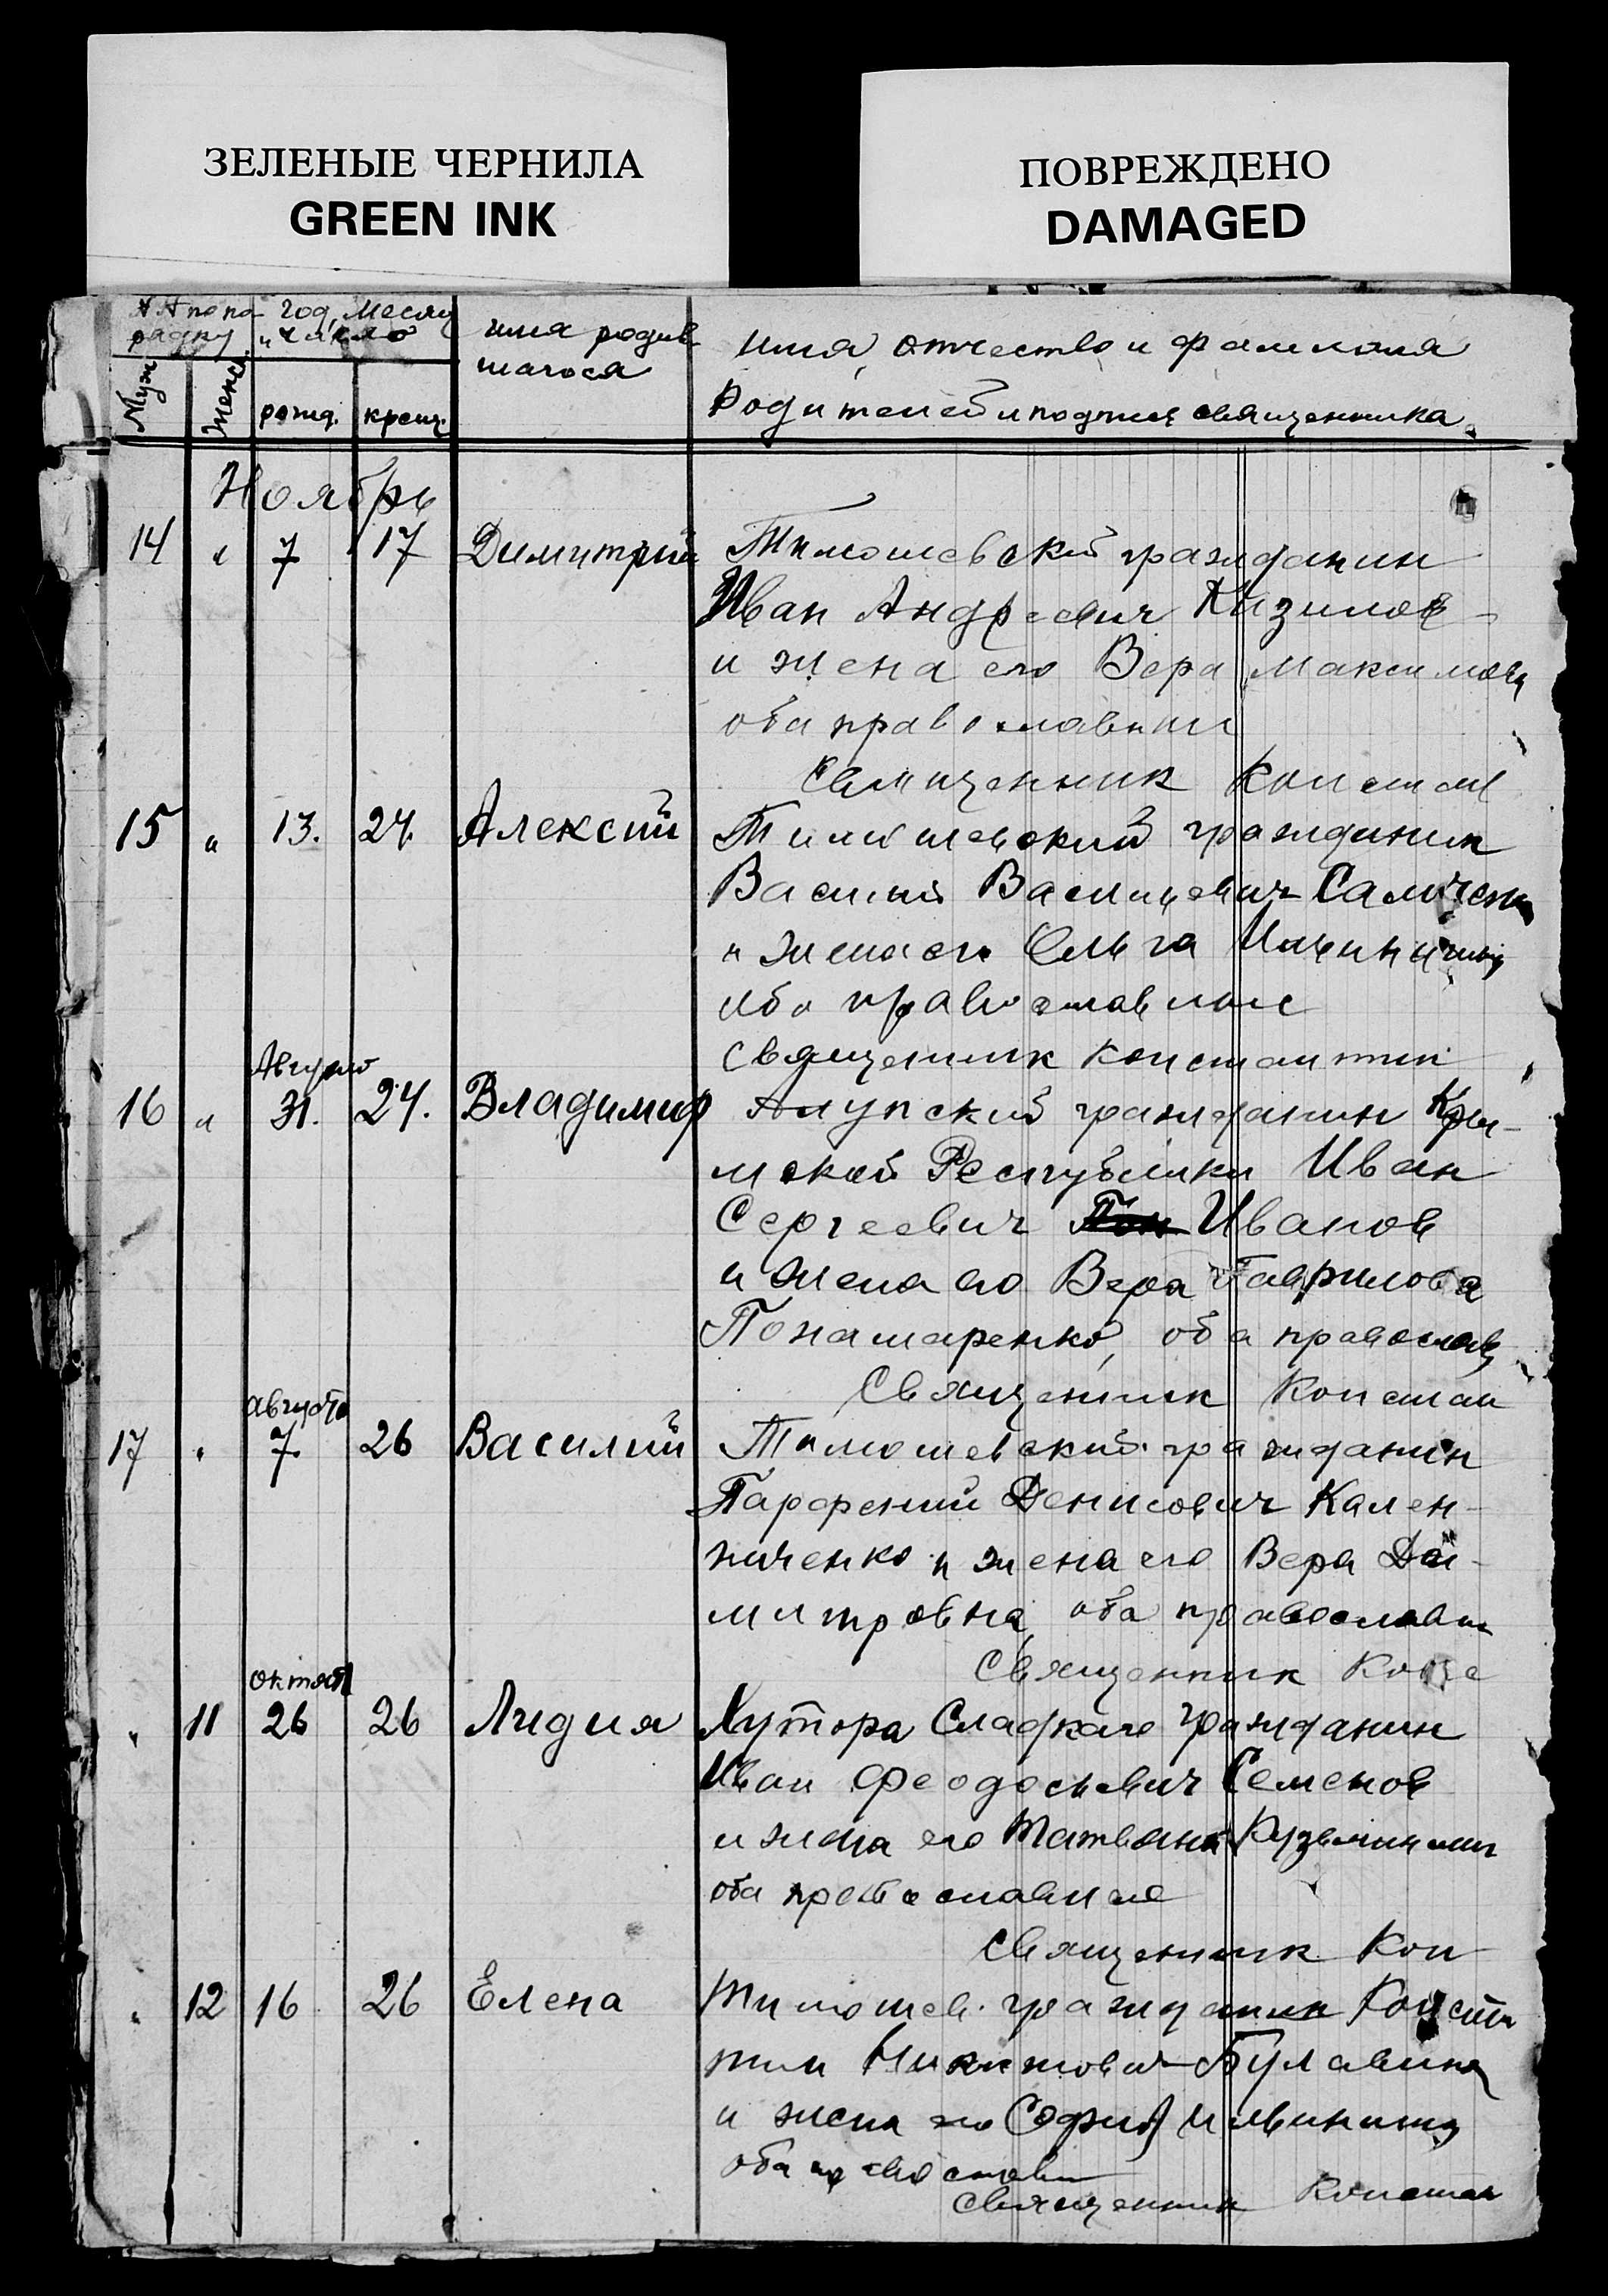 ЗЕЛЕНЫЕ ЧЕРНИЛА
GREEN INK
ПОВРЕЖДЕНО
DAMAGED
№№ по по-
рядку
Муж.
Женс.
год, месяц
и число
рожд.
крещ.
имя родив-
шагося
имя, отчество и фамилия
родителей и подпись священника.
Ноябрь
14 " 7 17 Димитрий Тимошевский гражданин
Иван Андреевич Кизилов
и жена его Вера Максимов
оба православныи
Священник Констан
15 " 13. 24. Алексий Тимошевский гражданин
Василий Васильевич
и жена его Ольга Ильинична
оба православные
Священник Константин
Августа
16 " 31. 24. Владимир Алупский гражданин Кры-
мской Республики Иван
Сергеевич Иванов
и жена его Вера Гаврилова
Понамаренко, оба православ
Священник Констан
августа
17 " 7. 26 Василий Тимошевский гражданин
Парфений Денисович Кален-
ниченко и жена его Вера Ди-
митровна, оба православн
Священник Конс
октяб
" 11 26 26 Лидия Хутора Сладкаго гражданин
Иван Феодосьевич Семенов
и жена его Татьяна Кузьминична
оба православные
Священник Кон
" 12 16 26 Елена Тимошев. гражданин Конста
тин Никитович Булавина
и жена его София Ильинишн
оба православн
Священник Констан